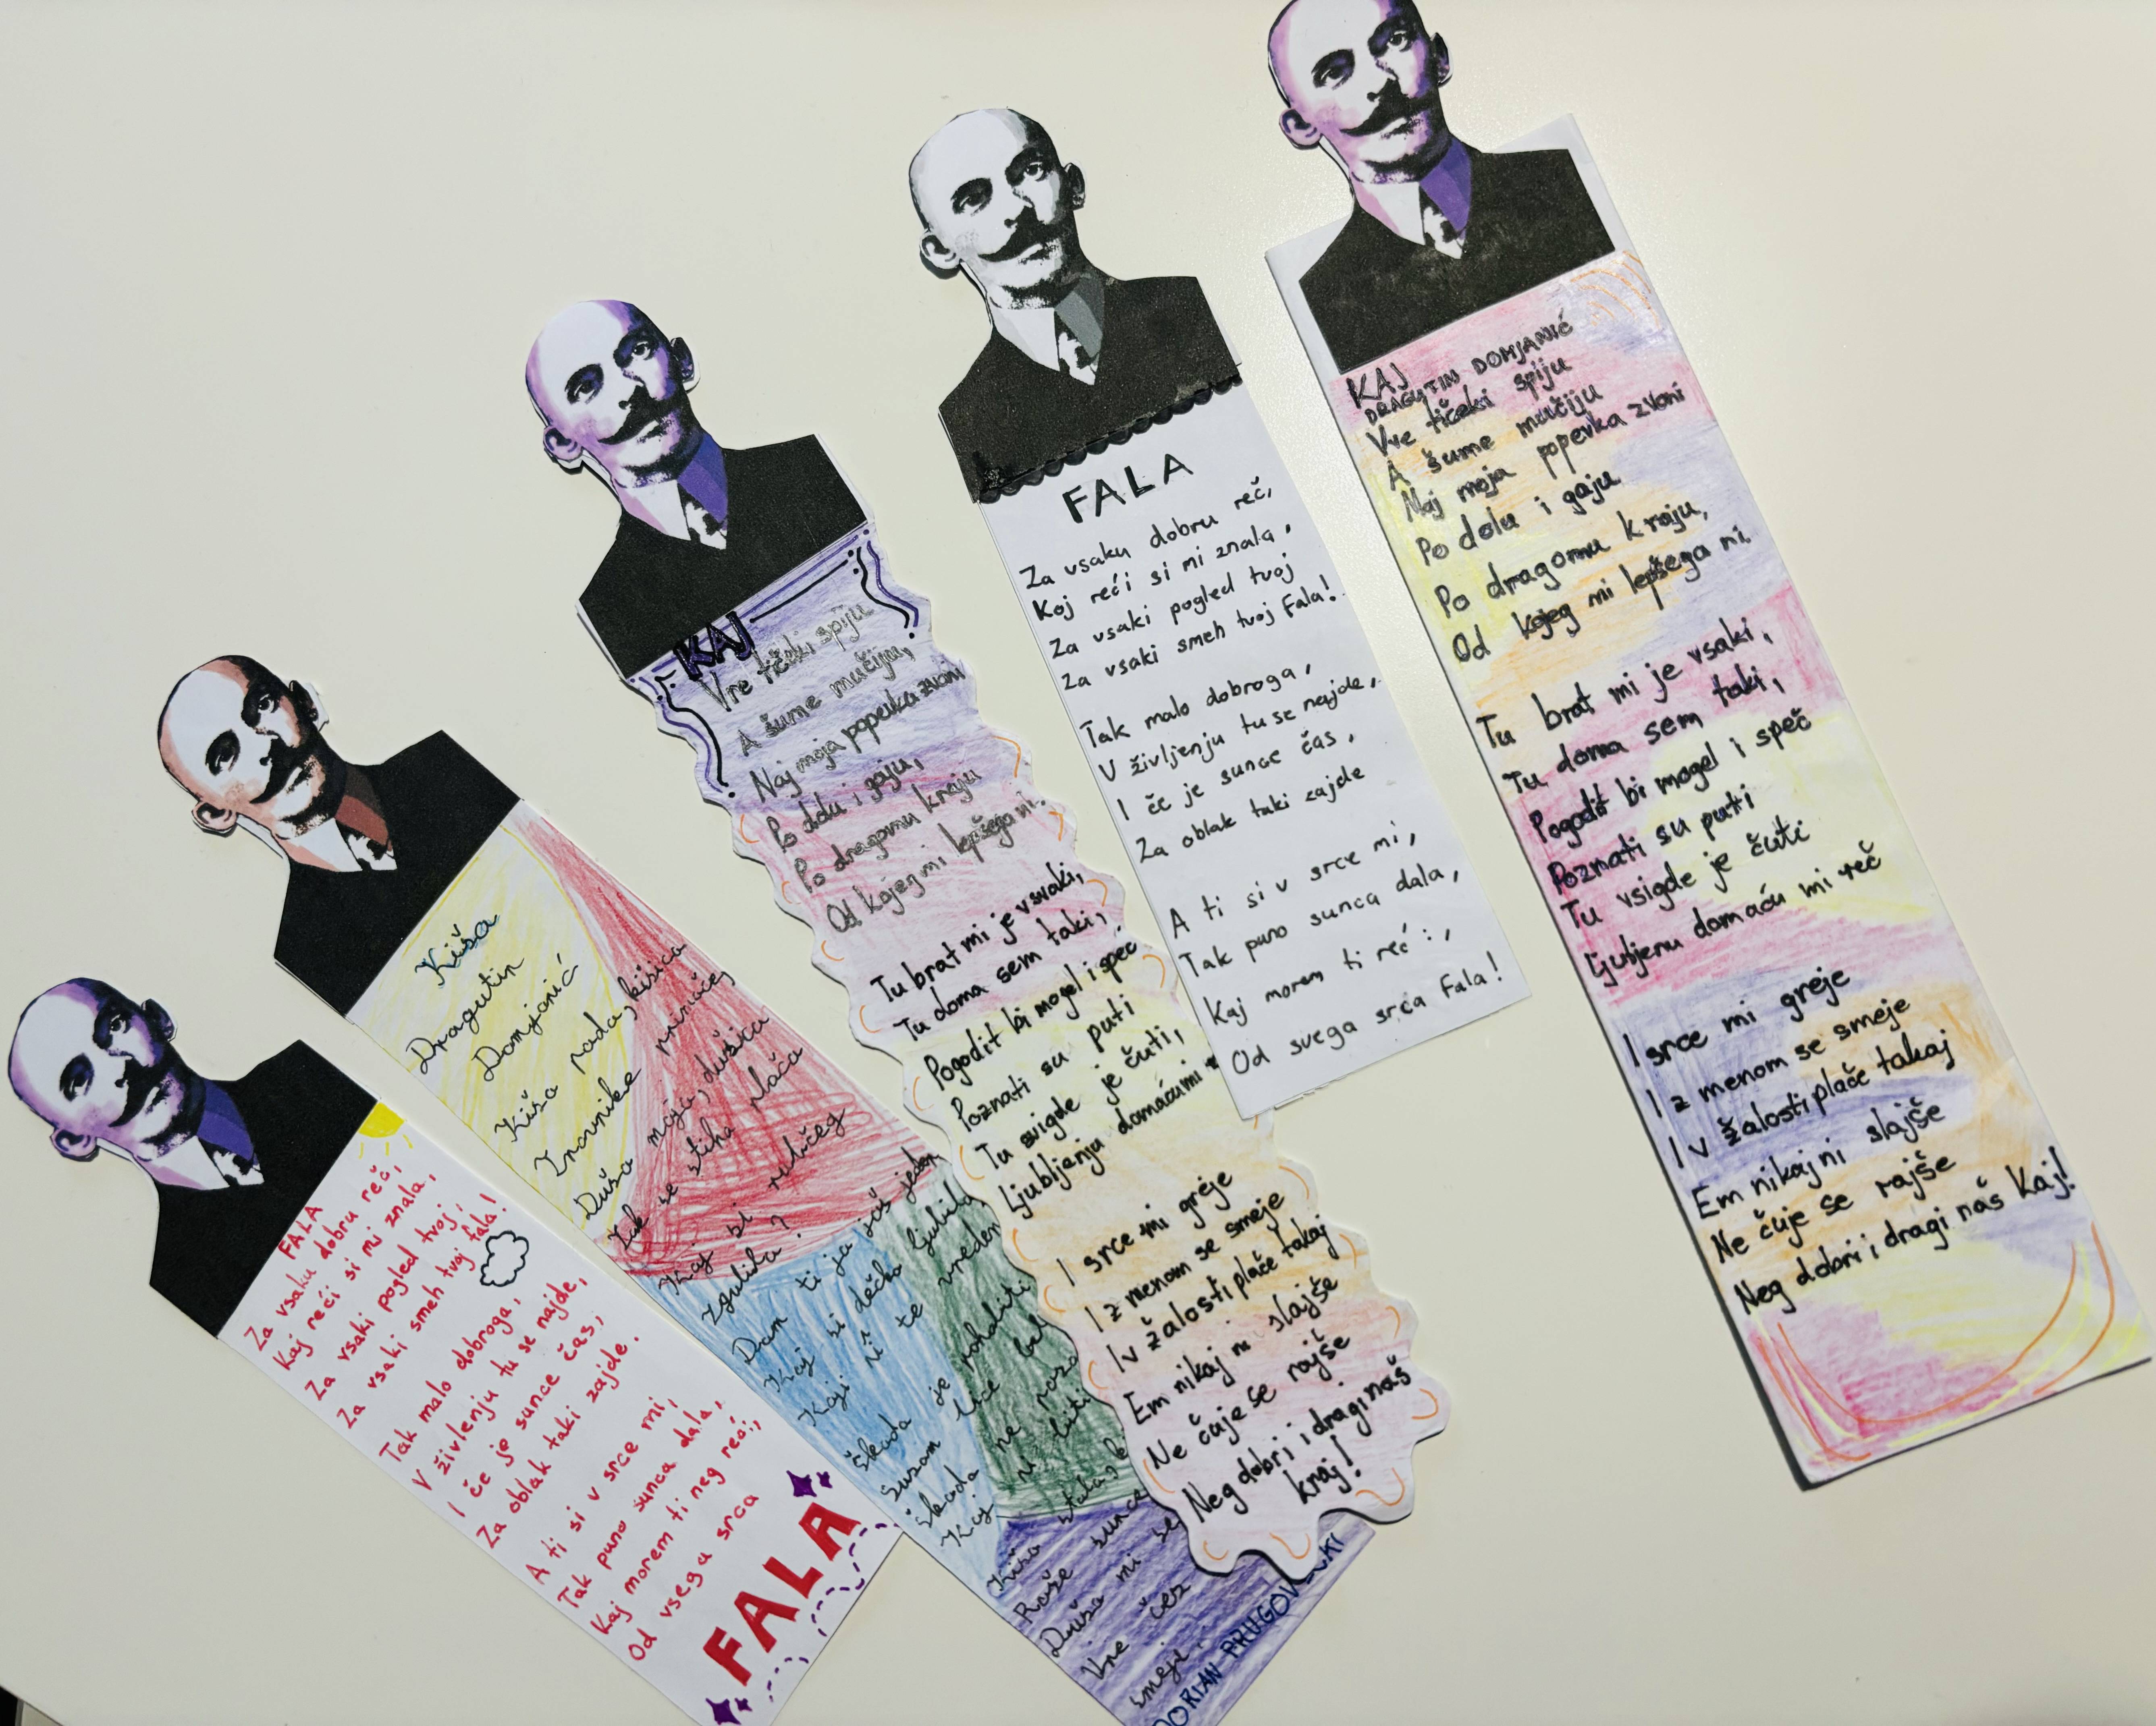 FALA
Za vsaku dobru reč,
Kaj reći si mi znala,
Za vsaki pogled tvoj,
Za vsaki smeh tvoj fala!
Tak malo dobroga,
V živlenju tu se najde,
I če je sunce čas,
Za oblak taki zajde.
A ti si v srce mi,
Tak puno sunca dala,
Kaj morem ti neg reć:,
Od vsega srca
FALA
Kiša
Dragutin
Domjanić
Kiša rada, kišica
Znovnike
Duša moja, dušica
Zak se stiha plača
Kaj si
zgubila?
Dam ti ja još jeden
Kaj si dečko ljubila
Koji ni te vreden
škoda je
suzam lice
škoda ne
Kaj ni
Kiša
Rože sunce
Duša mi se
Vre čez
smeji
DORIAN
KAJ
Vre tičeki spiju
A šume mučiju,
Naj moja popevka zvoni
Po dolu i gaju,
Po dragomu kraju
Od kojeg mi lepšega ni.
Tu brat mi je vsaki,
Tu doma sem taki,
Pogodit bi mogel i speč
Poznati su puti
Tu svigde je čuti,
Ljubljenju domaću mi
I srce mi greje
I z menom se smeje
I v žalosti plače takaj
Em nikaj ni slajše
Ne čuje se rajše
Neg dobri i dragi naš
kraj!
FALA
Za vsaku dobru reč,
Koj reći si mi znala,
Za vsaki pogled tvoj
Za vsaki smeh tvoj Fala!
Tak malo dobroga,
V življenju tu se najde,
I če je sunce čas,
Za oblak taki zajde
A ti si v srce mi,
Tak puno sunca dala,
Kaj morem ti reć:,
Od svega srca Fala!
KAJ
DRAGUTIN DOMJANIĆ
Vre tičeki spiju
A šume mučiju
Naj moja popevka zvoni
Po dolu i gaju
Po dragomu kraju,
Od kojeg mi lepšega ni.
Tu brat mi je vsaki,
Tu doma sem taki,
Pogodit bi mogel i speč
Poznati su puti
Tu vsigde je čuti
Ljubljenu domaću mi reč
I srce mi greje
I z menom se smeje
I v žalosti plače takaj
Em nikaj ni slajše
Ne čuje se rajše
Neg dobri i dragi naš Kaj!